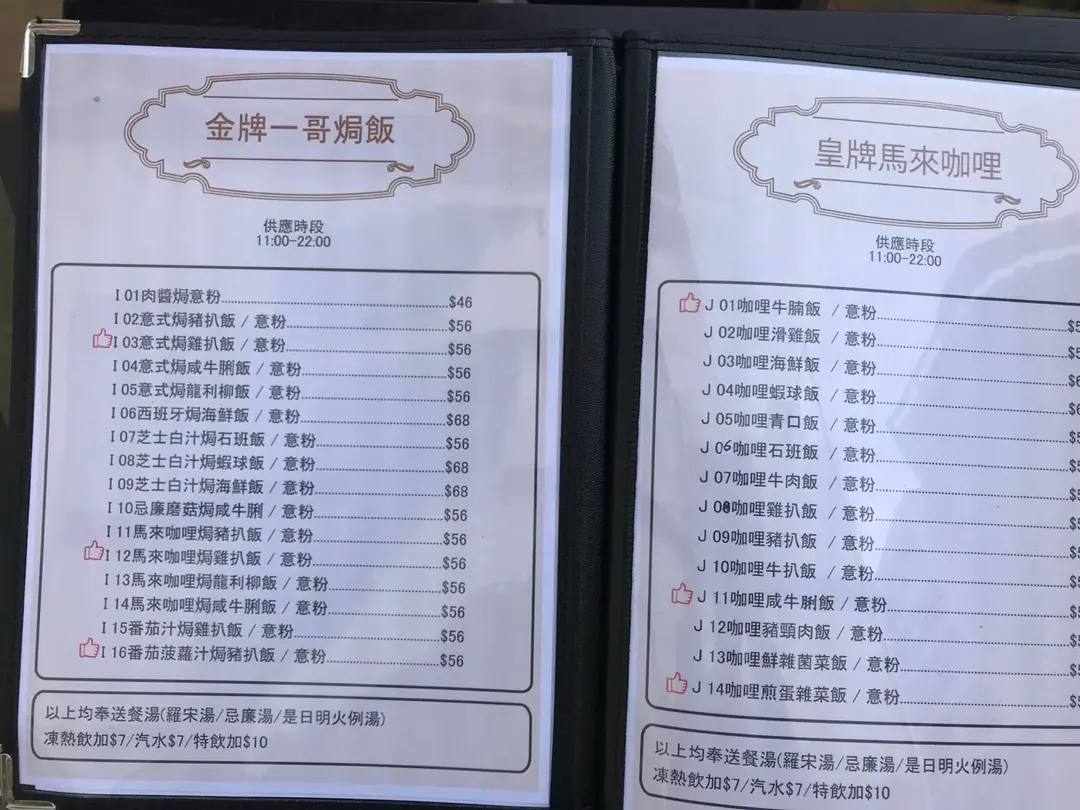 金牌一哥焗飯
供應時段
11:00-22:00
I 01肉醬焗意粉 $46
I 02意式焗豬扒飯 / 意粉 $56
I 03意式焗雞扒飯 / 意粉 $56
I 04意式焗咸牛脷飯 / 意粉 $56
I 05意式焗龍利柳飯 / 意粉 $56
I 06西班牙焗海鮮飯 / 意粉 $68
I 07芝士白汁焗石班飯 / 意粉 $56
I 08芝士白汁焗蝦球飯 / 意粉 $68
I 09芝士白汁焗海鮮飯 / 意粉 $68
I 10忌廉磨菇焗咸牛脷 / 意粉 $56
I 11馬來咖哩焗豬扒飯 / 意粉 $56
I 12馬來咖哩焗雞扒飯 / 意粉 $56
I 13馬來咖哩焗龍利柳飯 / 意粉 $56
I 14馬來咖哩焗咸牛脷飯 / 意粉 $56
I 15番茄汁焗雞扒飯 / 意粉 $56
I 16番茄菠蘿汁焗豬扒飯 / 意粉 $56
以上均奉送餐湯(羅宋湯/忌廉湯/是日明火例湯)
凍熱飲加$7/汽水$7/特飲加$10
皇牌馬來咖哩
供應時段
11:00-22:00
J 01咖哩牛腩飯 / 意粉
J 02咖哩滑雞飯 / 意粉
J 03咖哩海鮮飯 / 意粉
J 04咖哩蝦球飯 / 意粉
J 05咖哩青口飯 / 意粉
J 06咖哩石班飯 / 意粉
J 07咖哩牛肉飯 / 意粉
J 08咖哩雞扒飯 / 意粉
J 09咖哩豬扒飯 / 意粉
J 10咖哩牛扒飯 / 意粉
J 11咖哩咸牛脷飯 / 意粉
J 12咖哩豬頸肉飯 / 意粉
J 13咖哩鮮雜菌菜飯 / 意粉
J 14咖哩煎蛋雜菜飯 / 意粉
以上均奉送餐湯(羅宋湯/忌廉湯/是日明火例湯)
凍熱飲加$7/汽水$7/特飲加$10